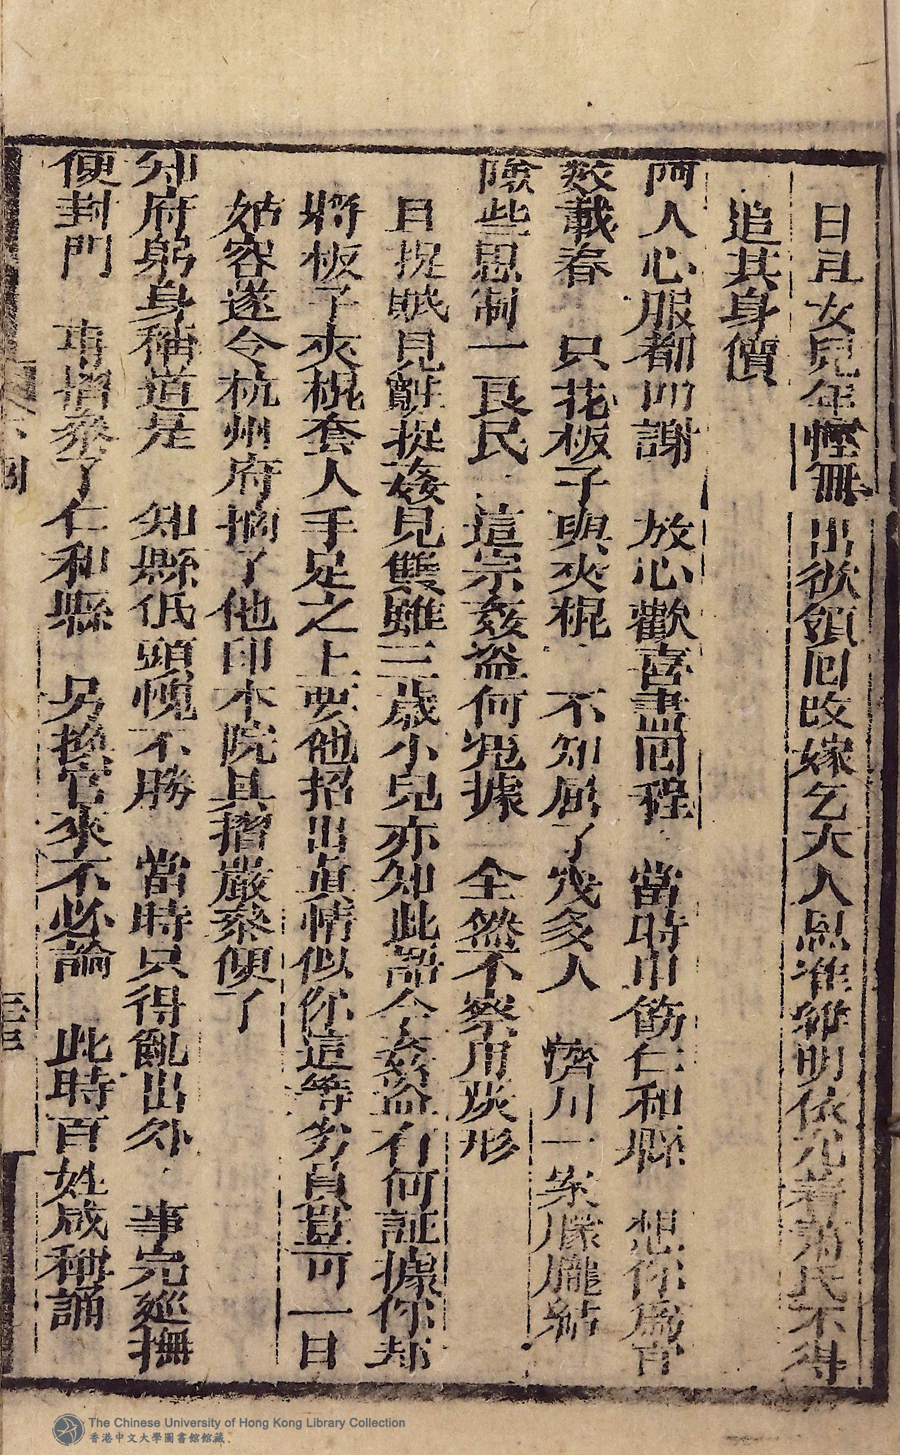 日且女兒年輕無出欲領回改嫁乞大人恩准雍明依允着蕭氏不得
追其身價
阿人心服都叩謝　放心歡喜盡回程　當時申飭仁和縣　想你為官
数載春　只花板子與夾棍　不知屈了㡬多人　濟川一案朦朧結
險些思制一良民　這宗姦盜何凴據　全然不察用炭形
且捉賊見賍捉姦見雙雖三歲小兒亦知此語今姦盜有何証據你却
將板子夾棍套人手足之上要他招出真情似你這等劣員豈可一日
姑容遂令杭州府摘了他印本院具摺嚴叅便了
知府躬身稱道是　知縣低頭愧不勝　當時只得亂出外　事完廵撫
便封門　專摺叅了仁和縣　另換官來不必論　此時百姓咸稱誦
The Chinese University of Hong Kong Library Collection
香港中文大學圖書館館藏